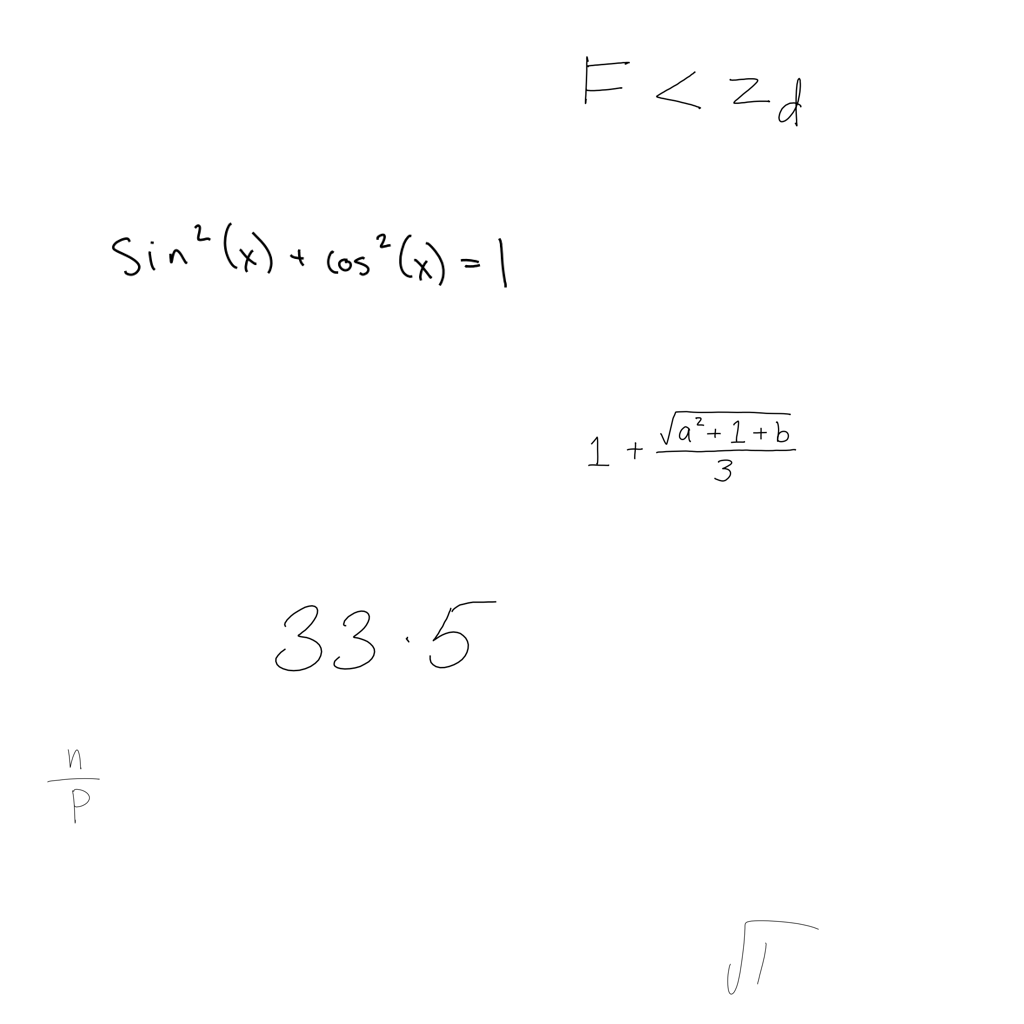 F < z_d
Sin²(x) + cos²(x) = 1
1 + \frac{\sqrt{a²+1+b}}{3}
33·5
\frac{n}{p}
\sqrt{1}